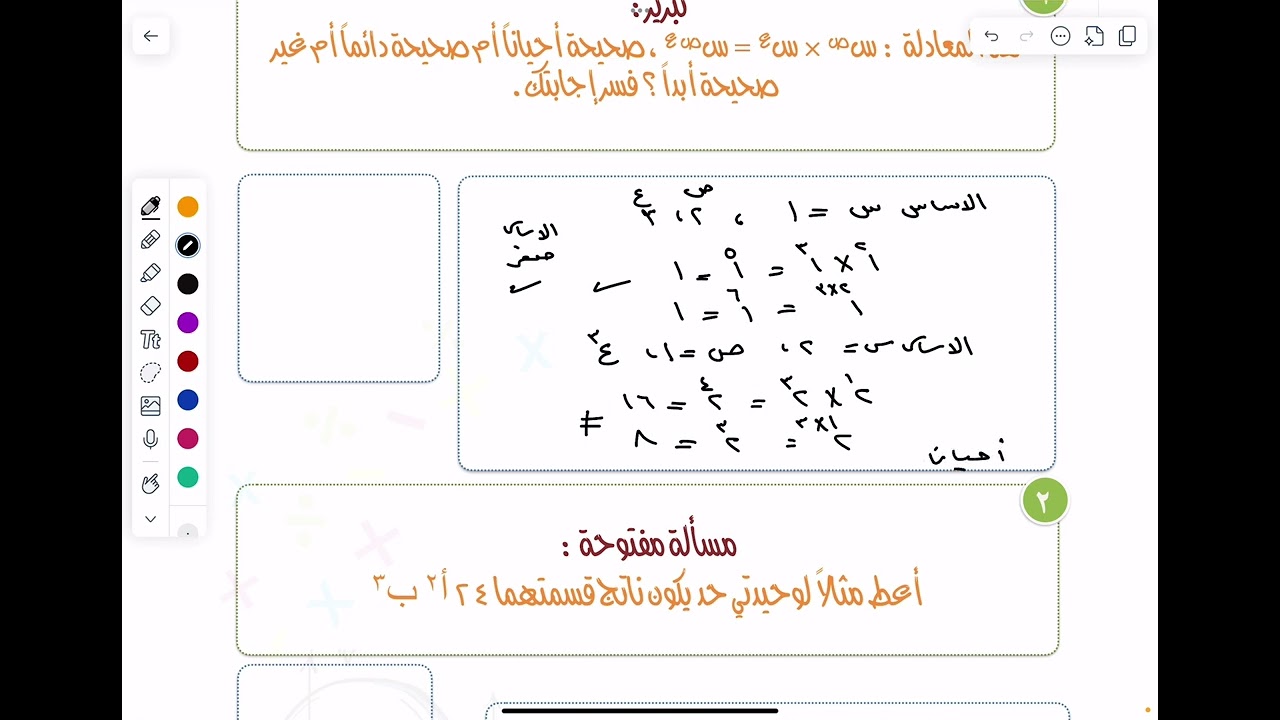 تبرير:
المعادلة : س^ص × س^ع = س^ص ع ، صحيحة أحياناً أم صحيحة دائماً أم غير
صحيحة أبداً ؟ فسر إجابتك .
الاساس س = ١ ، ص ٢ ، ع ٣
١^٢ × ١^٣ = ١^٥ = ١
١^٢×٣ = ١^٦ = ١
الاساس صفر
✓ ✓
الاساس س = ٢ ، ص = ١ ، ع ٣
٢^١ × ٢^٣ = ٢^٤ = ١٦
٢^١×٣ = ٢^٣ = ٨
≠
أحيانا
٢
مسألة مفتوحة :
أعط مثالاً لوحيدتي حد يكون ناتج قسمتهما ٢٤ أ^٢ ب^٣
Tt